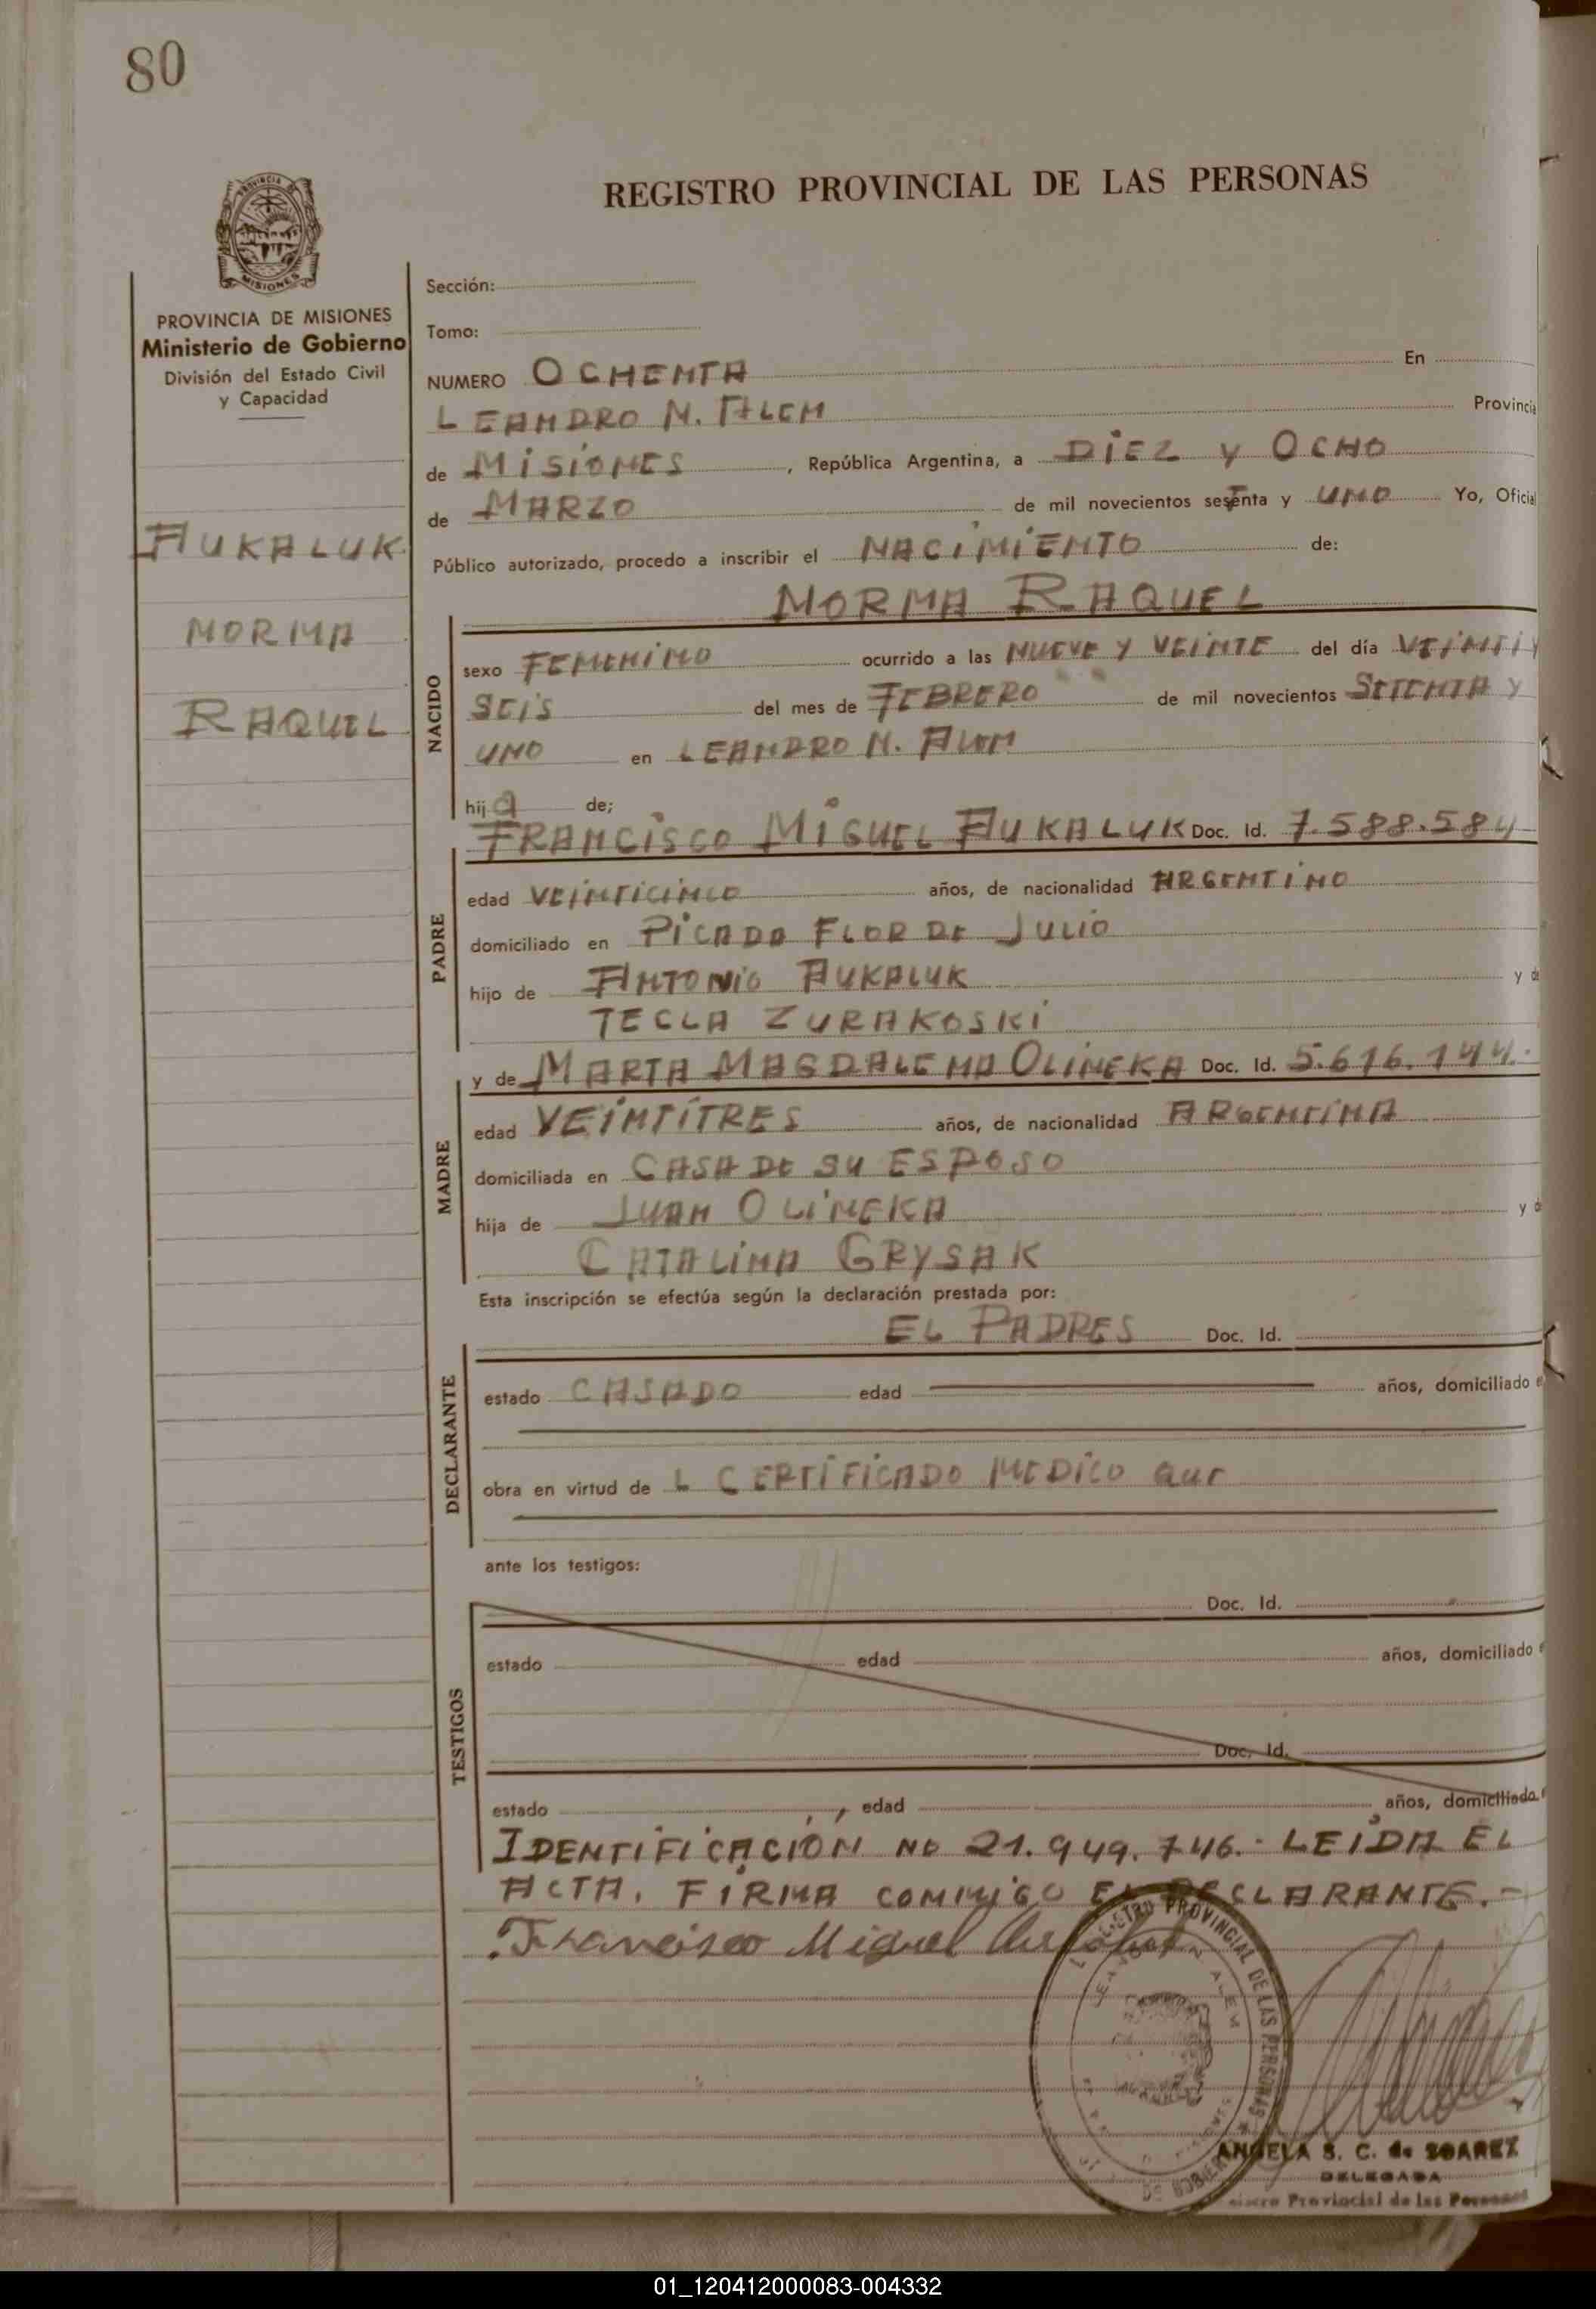 80
REGISTRO PROVINCIAL DE LAS PERSONAS
PROVINCIA DE MISIONES
PROVINCIA DE MISIONES
Ministerio de Gobierno
División del Estado Civil
y Capacidad
AUKALUK
NORMA
RAQUEL
Sección:
Tomo:
NUMERO OCHENTA En
LEANDRO N. ALEM Provincia
de MISIONES, República Argentina, a DIEZ Y OCHO
de MARZO de mil novecientos setenta y UNO Yo, Oficial
Público autorizado, procedo a inscribir el NACIMIENTO de:
NORMA RAQUEL
NACIDO
sexo FEMENINO ocurrido a las NUEVE Y VEINTE del día VEINTIY
SEIS del mes de FEBRERO de mil novecientos SETENTA Y
UNO en LEANDRO N. ALEM
hija de;
FRANCISCO MIGUEL AUKALUK Doc. Id. 7.588.584
PADRE
edad VEINTICINCO años, de nacionalidad ARGENTINO
domiciliado en PICADA FLOR DE JULIO
hijo de ANTONIO AUKALUK y de
TECLA ZURAKOSKI
y de MARTA MAGDALENA OLINEKA Doc. Id. 5.616.144.
MADRE
edad VEINTITRES años, de nacionalidad ARGENTINA
domiciliada en CASA DE SU ESPOSO
hija de JUAN OLINEKA y de
CATALINA GRYSAK
Esta inscripción se efectúa según la declaración prestada por:
EL PADRES Doc. Id.
DECLARANTE
estado CASADO edad años, domiciliado e
obra en virtud de L CERTIFICADO MEDICO QUE
ante los testigos:
Doc. Id.
TESTIGOS
estado edad años, domiciliado e
Doc. Id.
estado edad años, domiciliado e
IDENTIFICACIÓN No 21.949.746.- LEIDA EL
ACTA, FIRMA CONMIGO EL DECLARANTE.-
Francisco Miguel
REGISTRO PROVINCIAL DE LAS PERSONAS
LEANDRO N. ALEM
ANGELA S. C. de SOAREZ
DELEGADA
Provincial de las Personas
01_120412000083-004332